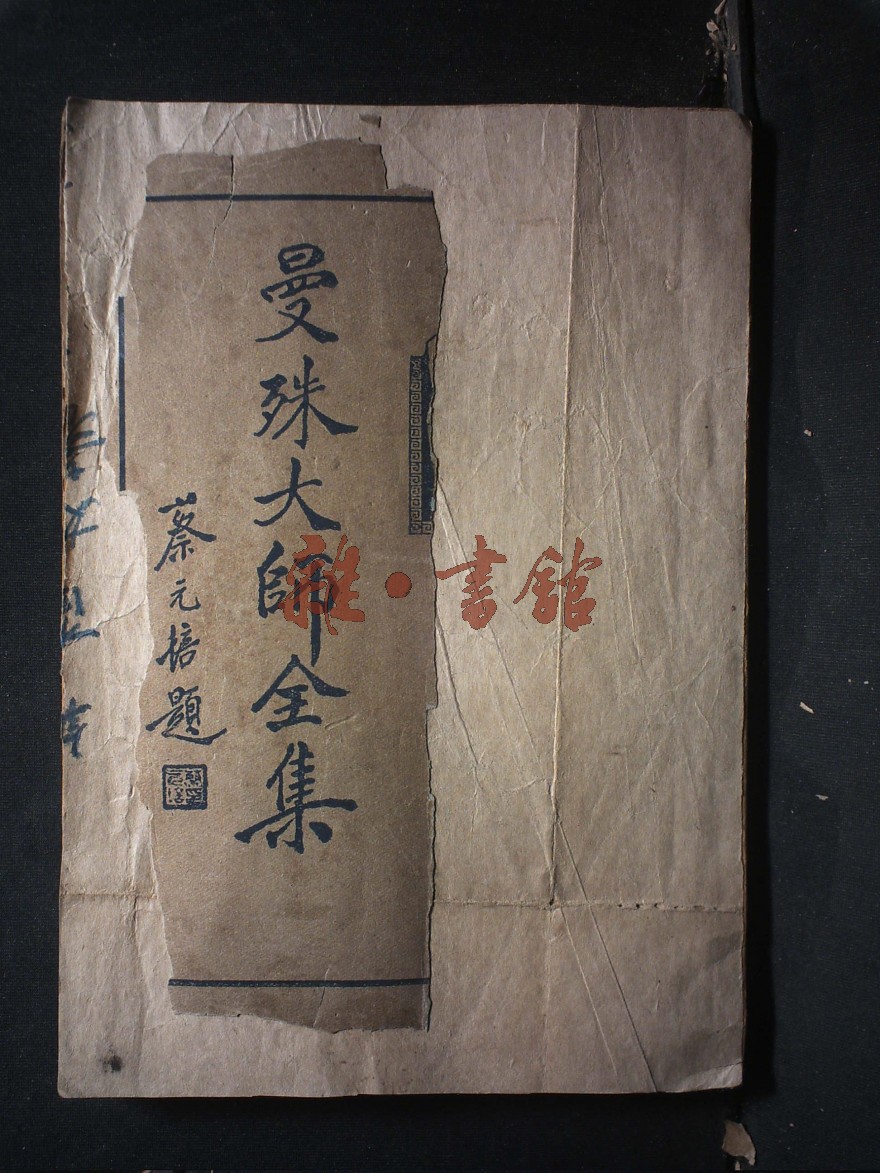 曼殊大師全集
蔡元培題
雜·書館